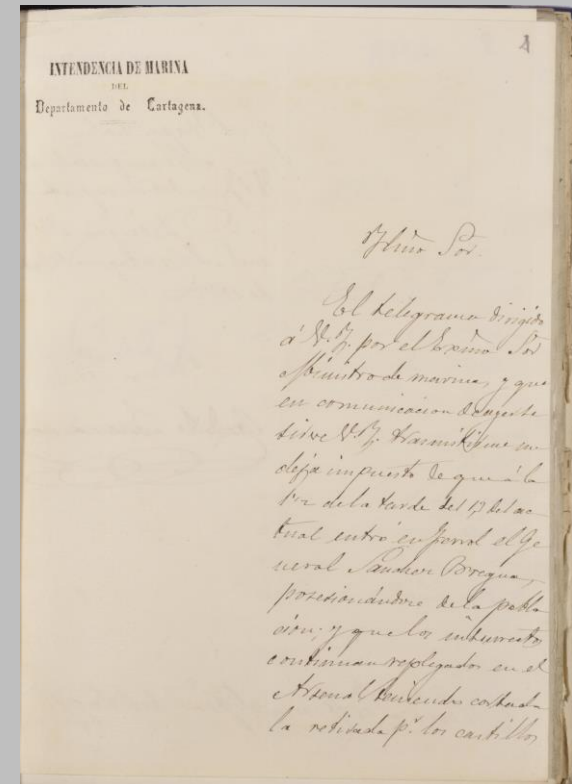 4
INTENDENCIA DE MARINA
DEL
Departamento de Cartagena.
Ylmo Sor.
El telegrama dirigido
á V.Y. por el Exmo Sor
Ministro de marina, y que
en comunicacion de ayer se
sirve V.Y. trasmitirme me
deja impuesto de que á la
1½ de la tarde del 17 del ac-
tual entró en Ferrol el Ge
neral Sanchez Bregua,
posesionándose de la pobla
cion; y que los insurrectos
continuan replegados en el
Arsenal teniendo cortada
la retirada pr. los castillos